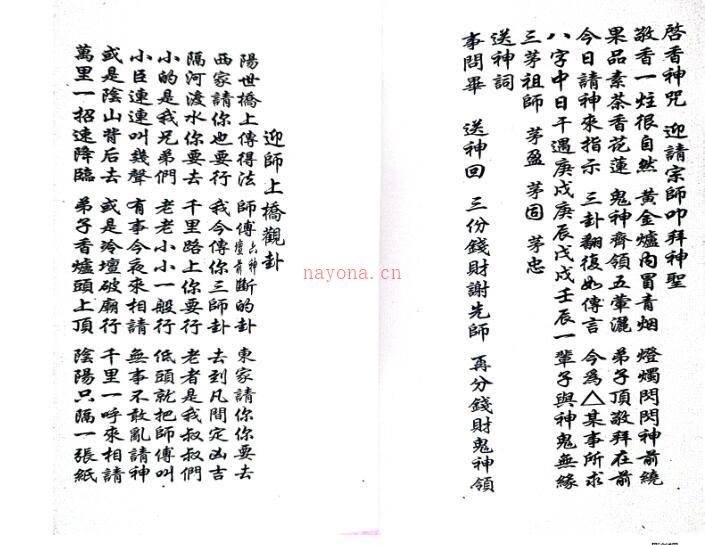 啓香神咒　迎請宗師叩拜神聖
敬香一炷很自然　黃金爐內冒青烟　燈燭閃閃神前繞
果品素茶香花蓮　鬼神齊領五葷灑　弟子頂敬拜在前
今日請神來指示　三卦翻復如傳言　今為△某事所求
八字中日干遇庚戌庚辰戊戌壬辰一輩子與神鬼無緣
三茅祖師　茅盈　茅固　茅忠
送神詞
事問畢　送神回　三份錢財謝先師　再分錢財鬼神領
迎師上橋觀卦
陽世橋上傳得法　師傅六神壇前斷的卦　東家請你你要去
西家請你也要行　我今傳你三師卦　去到凡間定凶吉
隔河渡水你要去　千里路上你要行　老者是我叔叔們
小的是我兄弟們　老老小小一般行　低頭就把師傅叫
小臣連連叫幾聲　有事今夜來相請　無事不敢亂請神
或是陰山背后去　或是冷壇破廟行　千里一呼來相請
萬里一招速降臨　弟子香爐頭上頂　陰陽只隔一張紙
nayona.cn